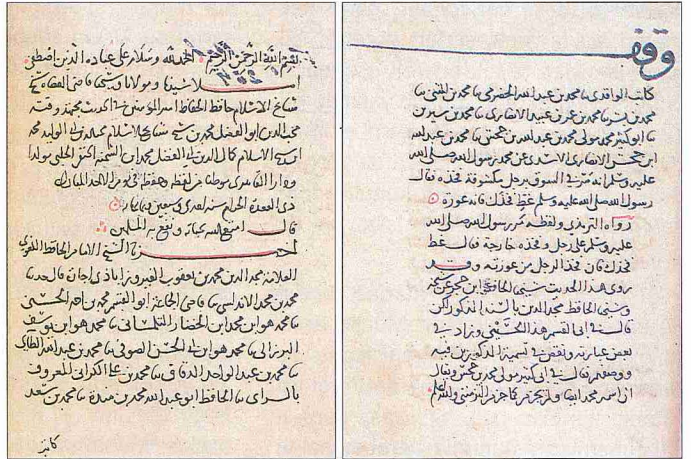 بسم الله الرحمن الرحيم الحمد لله وسلام على عباده الذين اصطفى
سيدنا ومولانا وشيخنا قاضي القضاة شيخ
مشايخ الاسلام حافظ الحفاظ
محب الدين ابو الفضل محمد بن شيخ مشايخ الاسلام محب الدين ابي الوليد محمد
ابن شيخ الاسلام كمال الدين ابي الفضل محمد ابن الشحنة الحنفي الحلبي مولدا
ودارا القاهري موطنا من لفظه وحفظه في يوم الاحد المبارك
ذي القعدة الحرام سنه احدى وسبعين وثمانمايه
قال امتع الله بحياته ونفع به المسلمين
اخبرنا الشيخ الامام الحافظ اللغوي
العلامة مجد الدين محمد بن يعقوب الفيروزاباذي اجازة قال حدثنا
محمد بن محمد الاندلسي ثنا قاضي الجماعة ابو القسم محمد بن احمد الحسيني
ثنا محمد هو ابن محمد ابن الخضار التلمساني ثنا محمد هو ابن يوسف
البرزالي ثنا محمد هو ابن ابي الحسن الصوفي ثنا محمد بن عبد الله الطائي
ثنا محمد بن عبد الواحد الدقاق ثنا محمد بن علي الكراني المعروف
ثنا الحافظ ابو عبد الله محمد بن مندة ثنا محمد بن سعد
كاتب
وقف
كاتب الواقدي ثنا محمد بن عبد الله الحضرمي ثنا محمد بن المثنى ثنا
محمد بن بشر ثنا محمد بن عمرو بن عبيد الانصاري ثنا محمد بن سيرين
ثنا ابو كثير محمد مولى محمد بن عبد الله بن جحش ثنا محمد بن عبد الله
ابن جحش الاسدي عن محمد رسول الله صلى الله
عليه وسلم انه مر في السوق برجل مكشوفة فخذه فقال
رسول الله صلى الله عليه وسلم غط فخذك فانه عورة
رواه الترمذي ولفظه مر رسول الله صلى الله
عليه وسلم على رجل وفخذه خارجة فقال غط
فخذك فان فخذ الرجل من عورته وقد
روى هذا الحديث شيخي الحافظ ابن حجر عن
وشيخي الحافظ مجد الدين بالسند المذكور لكن
قال في ابي القسم هذا الحسيني وزاد في
بعض عباراته ونقص في تسمية المذكورين فيه
ووصفهم وقال في ابي كثير مولى محمد بن جحش ويقال
ان اسمه محمد ايضا ولم يخرجه كما خرجه الترمذي والله اعلم